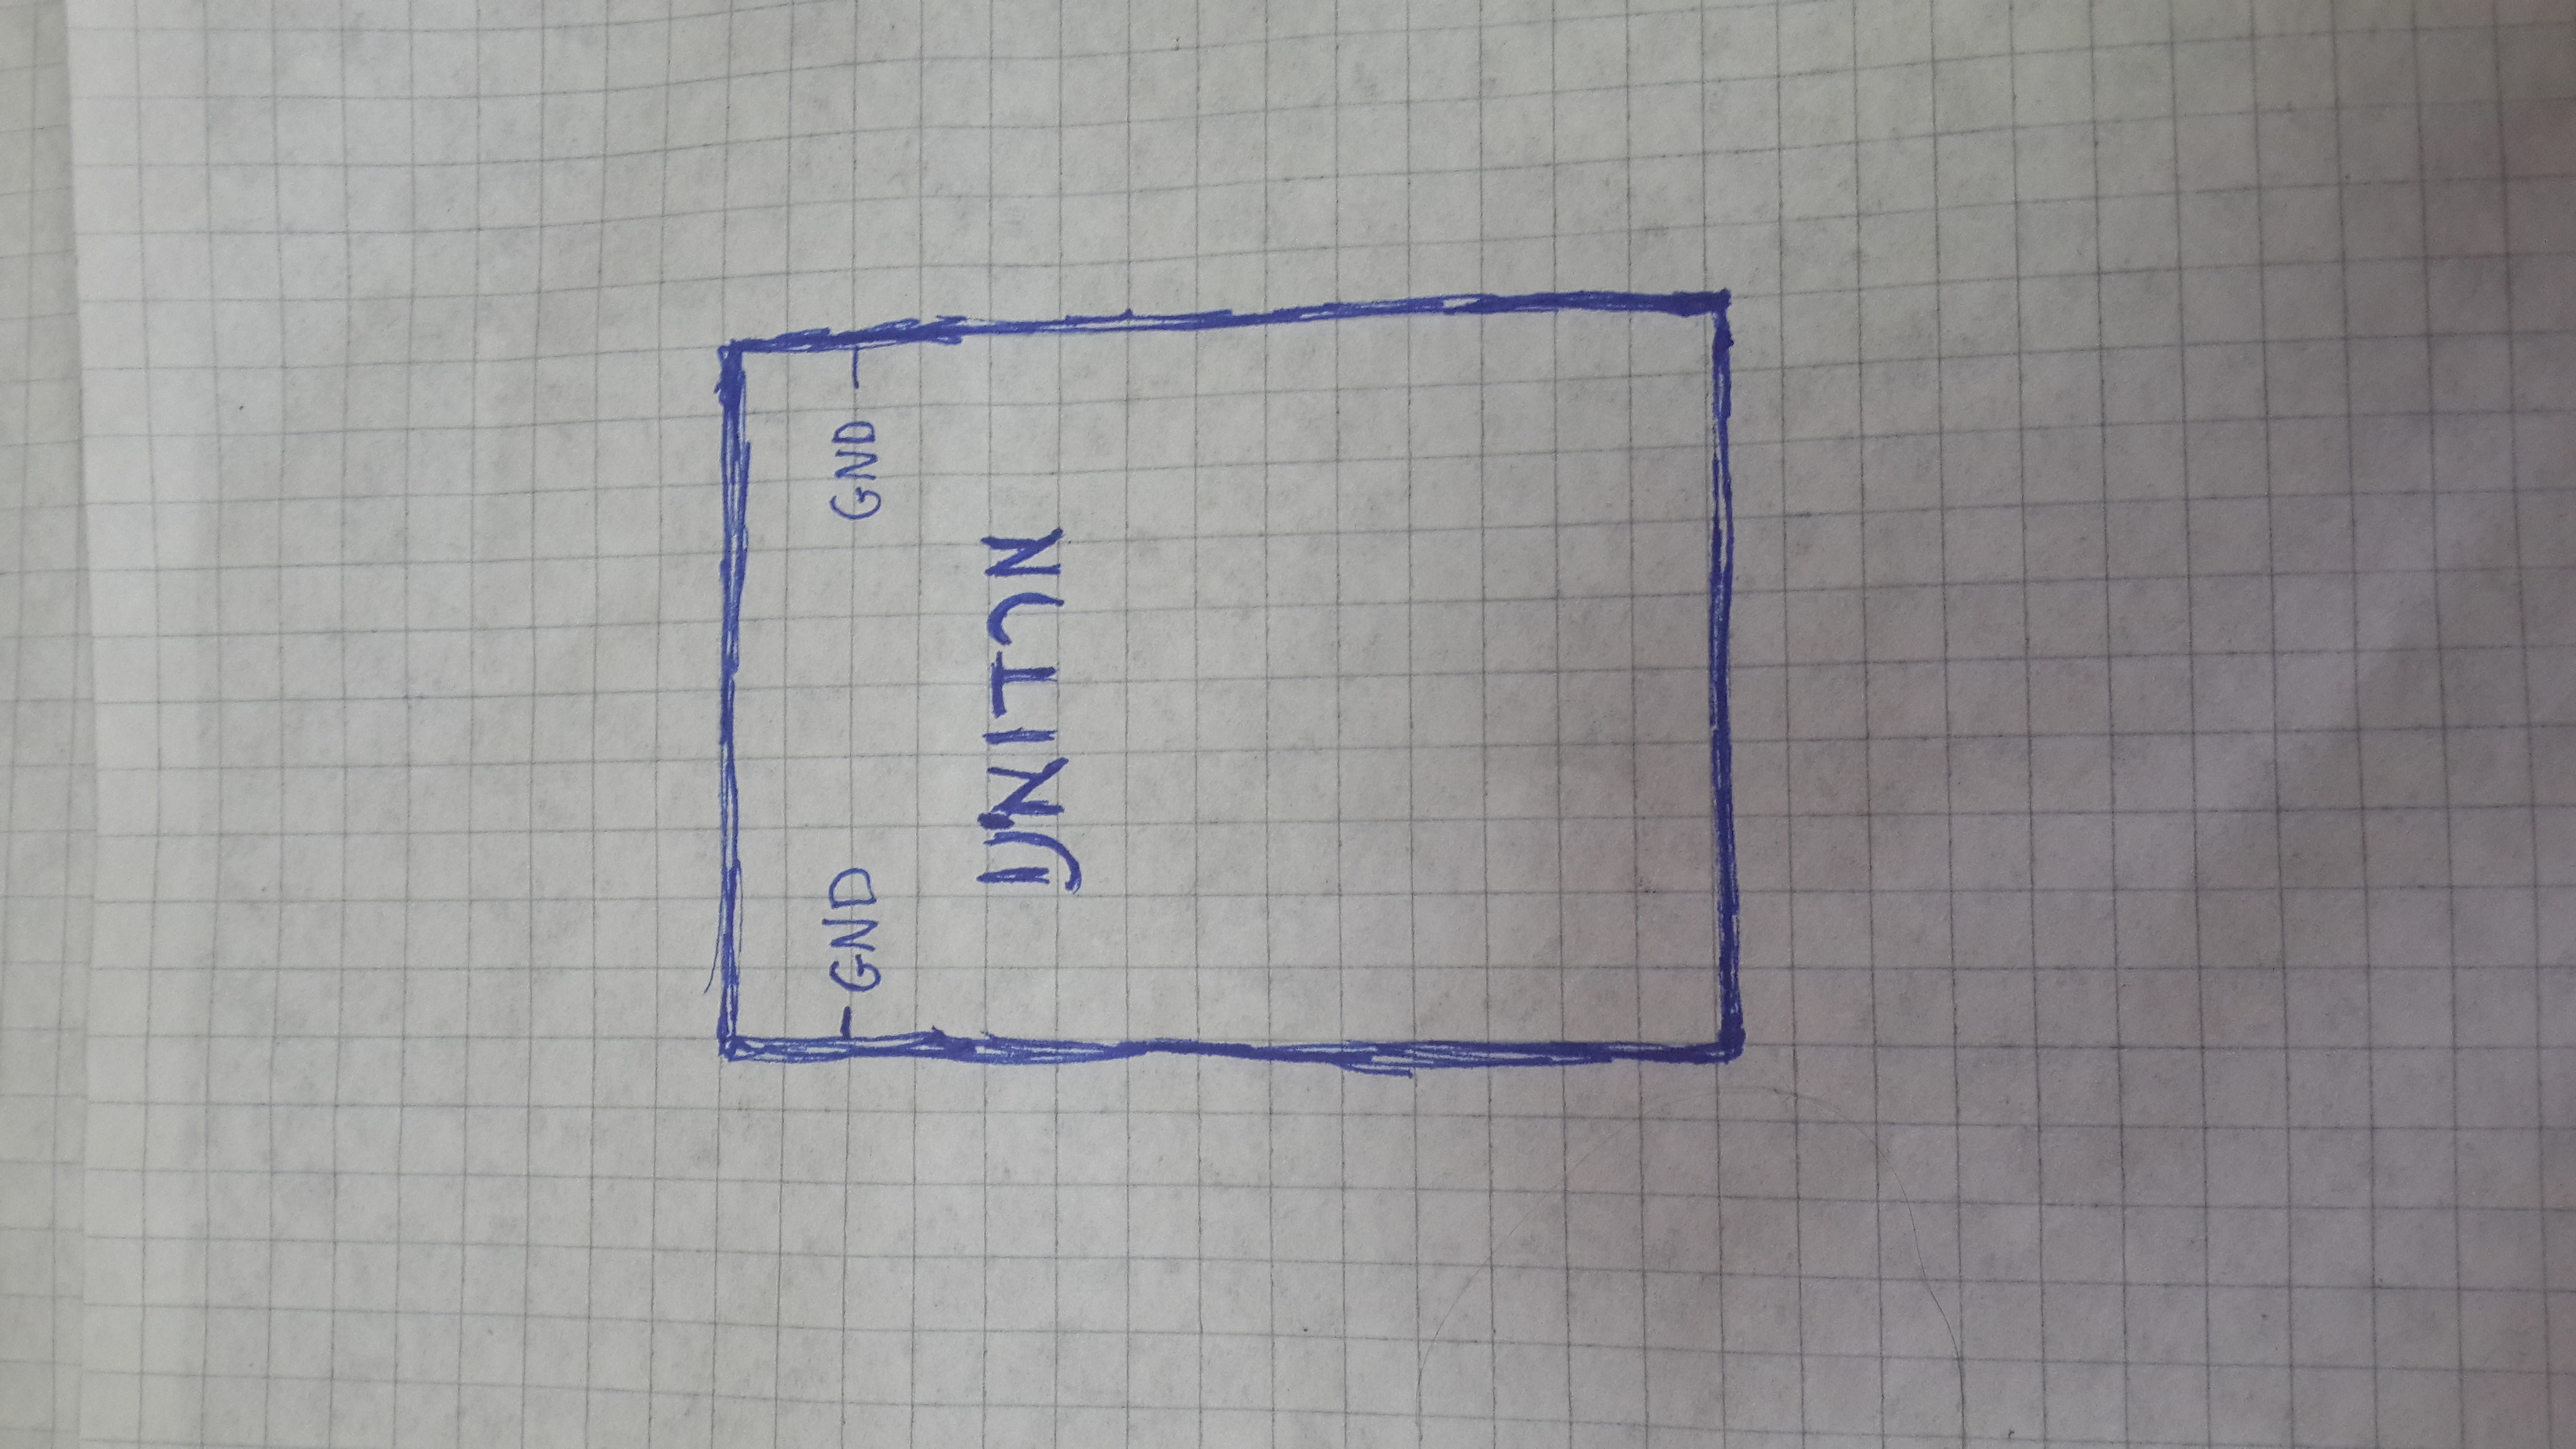 GND GND
ארדואינו